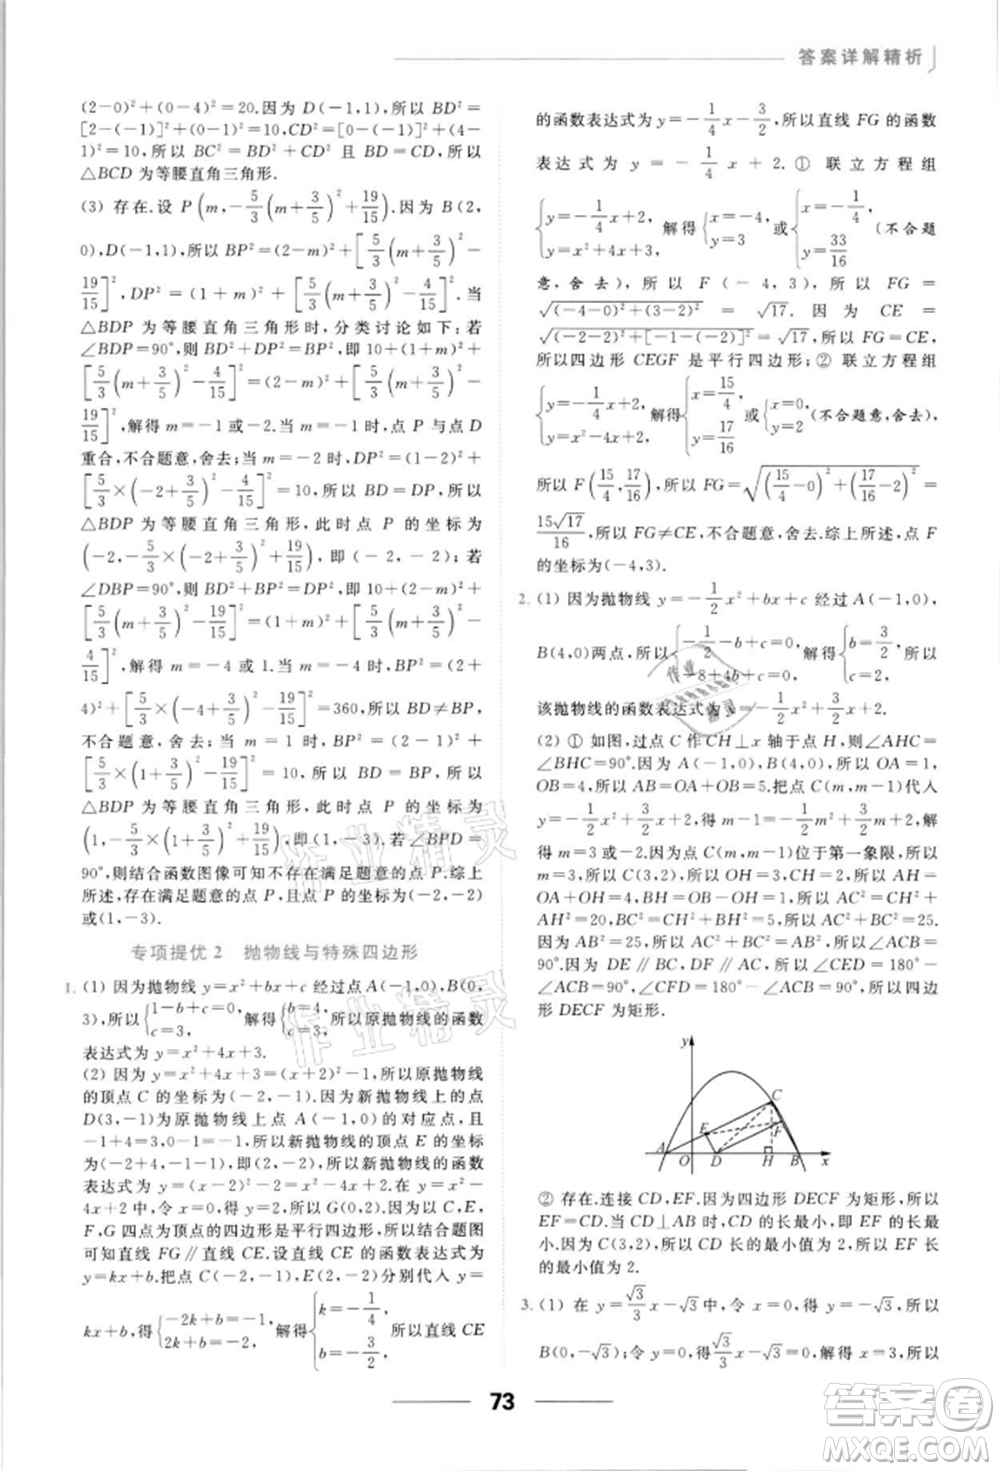 答案详解精析
(2-0)²+(0-4)²=20.因为 D(-1,1),所以 BD²=
[2-(-1)]²+(0-1)²=10,CD²=[0-(-1)]²+(4-
1)²=10,所以 BC²=BD²+CD² 且 BD=CD,所以
△BCD 为等腰直角三角形.
(3) 存在.设 P(m,-5/3(m+3/5)²+19/15).因为 B(2,
0),D(-1,1),所以 BP²=(2-m)²+[5/3(m+3/5)²-
19/15]²,DP²=(1+m)²+[5/3(m+3/5)²-4/15]².当
△BDP 为等腰直角三角形时,分类讨论如下:若
∠BDP=90°,则 BD²+DP²=BP²,即 10+(1+m)²
+[5/3(m+3/5)²-4/15]²=(2-m)²+[5/3(m+3/5)²-
19/15]²,解得 m=-1 或 m=-2.当 m=-1 时,点 P 与点 D
重合,不合题意,舍去;当 m=-2 时,DP²=(-2+1)²+
[5/3×(-2+3/5)²-4/15]²=10,所以 BD=DP,所以
△BDP 为等腰直角三角形,此时点 P 的坐标为
(-2,-5/3×(-2+3/5)²+19/15),即(-2,-2);若
∠DBP=90°,则 BD²+BP²=DP²,即 10+(2-m)²
+[5/3(m+3/5)²-19/15]²=(1+m)²+[5/3(m+3/5)²-
4/15]²,解得 m=-4 或 1.当 m=-4 时,BP²=(2+
4)²+[5/3×(-4+3/5)²-19/15]²=360,所以 BD≠BP,
不合题意,舍去;当 m=1 时,BP²=(2-1)²+
[5/3×(1+3/5)²-19/15]²=10,所以 BD=BP,所以
△BDP 为等腰直角三角形,此时点 P 的坐标为
(1,-5/3×(1+3/5)²+19/15),即(1,-3).若∠BPD=
90°,则结合函数图像可知不存在满足题意的点 P.综上
所述,存在满足题意的点 P,点 P 的坐标为(-2,-2)
或(1,-3).
专项提优 2 抛物线与特殊四边形
1. (1) 因为抛物线 y=x²+bx+c 经过点 A(-1,0),B(0,
3),所以{1-b+c=0, c=3, 解得{b=4, c=3, 所以原抛物线的函数
表达式为 y=x²+4x+3.
(2) 因为 y=x²+4x+3=(x+2)²-1,所以原抛物线
的顶点 C 的坐标为(-2,-1).因为平移后抛物线上的点
D(3,-1)为原抛物线上点 A(-1,0)的对应点,
-1+4=3,0-1=-1,所以新抛物线的顶点 E 的坐标
为(-2+4,-1-1),即(2,-2),所以新抛物线的函数
表达式为 y=(x-2)²-2=x²-4x+2.因为在 y=x²-
4x+2 中,令 x=0,得 y=2,所以 G(0,2).因为以 C,E,
F,G 四点为顶点的四边形是平行四边形,所以结合题图
可知直线 FG∥直线 CE.设直线 CE 的函数表达式为
y=kx+b.把点 C(-2,-1),E(2,-2)分别代入 y=
kx+b,得{-2k+b=-1, 2k+b=-2, 解得{k=-1/4, b=-3/2, 所以直线 CE
的函数表达式为 y=-1/4x-3/2,所以直线 FG 的函数
表达式为 y=-1/4x+2.① 联立方程组
{y=-1/4x+2, y=x²+4x+3, 解得{x=-4, y=3 或{x=-1/4, y=33/16 (不合题
意,舍去),所以 F(-4,3),所以 FG=
√((-4-0)²+(3-2)²)=√17.因为 CE=
√((-2-2)²+[-1-(-2)]²)=√17,所以 FG=CE,
所以四边形 CEGF 是平行四边形;② 联立方程组
{y=-1/4x+2, y=x²-4x+2, 解得{x=15/4, y=17/16 或{x=0, y=2 (不合题意,舍去),
所以 F(15/4,17/16),所以 FG=√((15/4-0)²+(17/16-2)²)=
15√17/16,所以 FG≠CE,不合题意,舍去.综上所述,点 F
的坐标为(-4,3).
2. (1) 因为抛物线 y=-1/2x²+bx+c 经过 A(-1,0),
B(4,0)两点,所以{-1/2-b+c=0, -8+4b+c=0, 解得{b=3/2, c=2, 所以
该抛物线的函数表达式为 y=-1/2x²+3/2x+2.
(2) ① 如图,过点 C 作 CH⊥x 轴于点 H,则∠AHC=
∠BHC=90°.因为 A(-1,0),B(4,0),所以 OA=1,
OB=4,所以 AB=OA+OB=5.因为 C(m,m-1)在
y=-1/2x²+3/2x+2 上,所以 m-1=-1/2m²+3/2m+2,
解得 m=3 或-2.因为 C(m,m-1)位于第一象限,所以
m=3,所以 C(3,2),所以 CH=2,OH=3,所以 AH=
OA+OH=4,BH=OB-OH=1,所以 AC²=AH²+
CH²=20,BC²=CH²+BH²=5,所以 AC²+BC²=25.
因为 AB²=25,所以 AC²+BC²=AB²,所以∠ACB=
90°.因为 DE∥BC,所以∠DEC+∠ACB=180°,
所以∠DEC=180°-∠ACB=90°.因为 DF∥AC,所以
∠ACB+∠CFD=180°,所以∠CFD=90°,所以四边
形 DECF 为矩形.
y
C
E
F
A
O
D
H
B
x
② 存在.连接 CD,EF.因为四边形 DECF 为矩形,所以
EF=CD.当 CD⊥AB时,CD 的长最小,即 EF 的长最
小.因为 C(3,2),所以 CD 长的最小值为 2,所以 EF 长
的最小值为 2.
3. (1) 在 y=√3/3x-√3中,令 x=0,得 y=-√3,所以
B(0,-√3),所以 c=-√3.令 y=0,解得 x=3,所以
73
作业精灵
作业精灵
作业精灵
答案圈
MXQE.COM